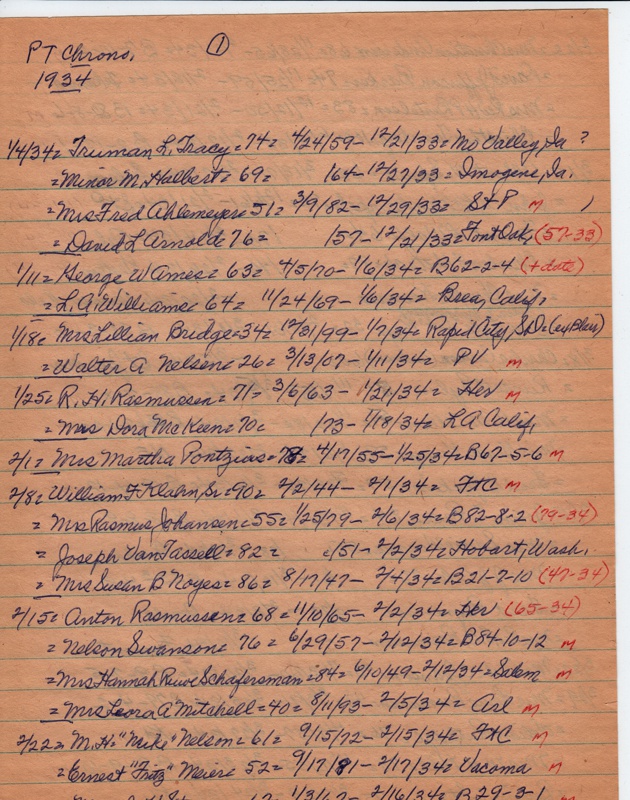 PT Chrono, 1
1934
1/4/34= Truman L. Tracy=74= 4/24/59-12/21/33=Mo Valley, Ia ?
=Minor M. Halbert= 69= 164-12/27/33= Imogene, Ia.
=Mrs Fred Ahlemeyer=51= 3/9/82-12/29/33= St P m
=David L Arnold= 76= 157-12/21/33=Font Oak, (57-33)
1/11= George W Ames= 63= 4/5/70-1/6/34= B62-2-4 (+date)
=L. A. Williams= 64= 11/24/69-1/6/34= Brea, Calif,
1/18= Mrs Lillian Bridge=34= 12/31/99-1/7/34= Rapid City, S.D.=(ex Blair)
=Walter A Nelson= 26= 3/13/07-1/11/34= PV m
1/25= R. H. Rasmussen= 71= 3/6/63-1/21/34= Her m
=Mrs Dora McKeen=70= 173-1/18/34= L A Calif,
2/1= Mrs Martha Pontzius=78= 4/17/55-1/25/34=B67-5-6 m
2/8= William F. Klahn, Sr=90= 2/2/44-2/1/34= FtC m
=Mrs Rasmus Johansen=55=1/25/79-2/6/34=B82-8-2 (79-34)
=Joseph VanTassell=82= c/51-2/2/34=Hobart, Wash.
=Mrs Susan B Noyes= 86= 8/17/47-2/4/34=B21-7-10 (47-34)
2/15= Anton Rasmussen= 68=11/10/65-2/2/34= Her (65-34)
=Nelson Swanson= 76= 6/29/57-2/12/34=B84-10-12 m
=Mrs Hannah Reuwe Schafersman=84= 6/10/49-2/12/34=Salem m
=Mrs Leora A Mitchell=40= 8/11/93-2/5/34= Arl m
2/22= M. H. "Mike" Nelson= 61= 9/15/72-2/15/34= FtC m
=Ernest "Fritz" Meier= 52= 9/17/81-2/17/34= Vacoma m
1/3/67-2/16/34= B29-3-1